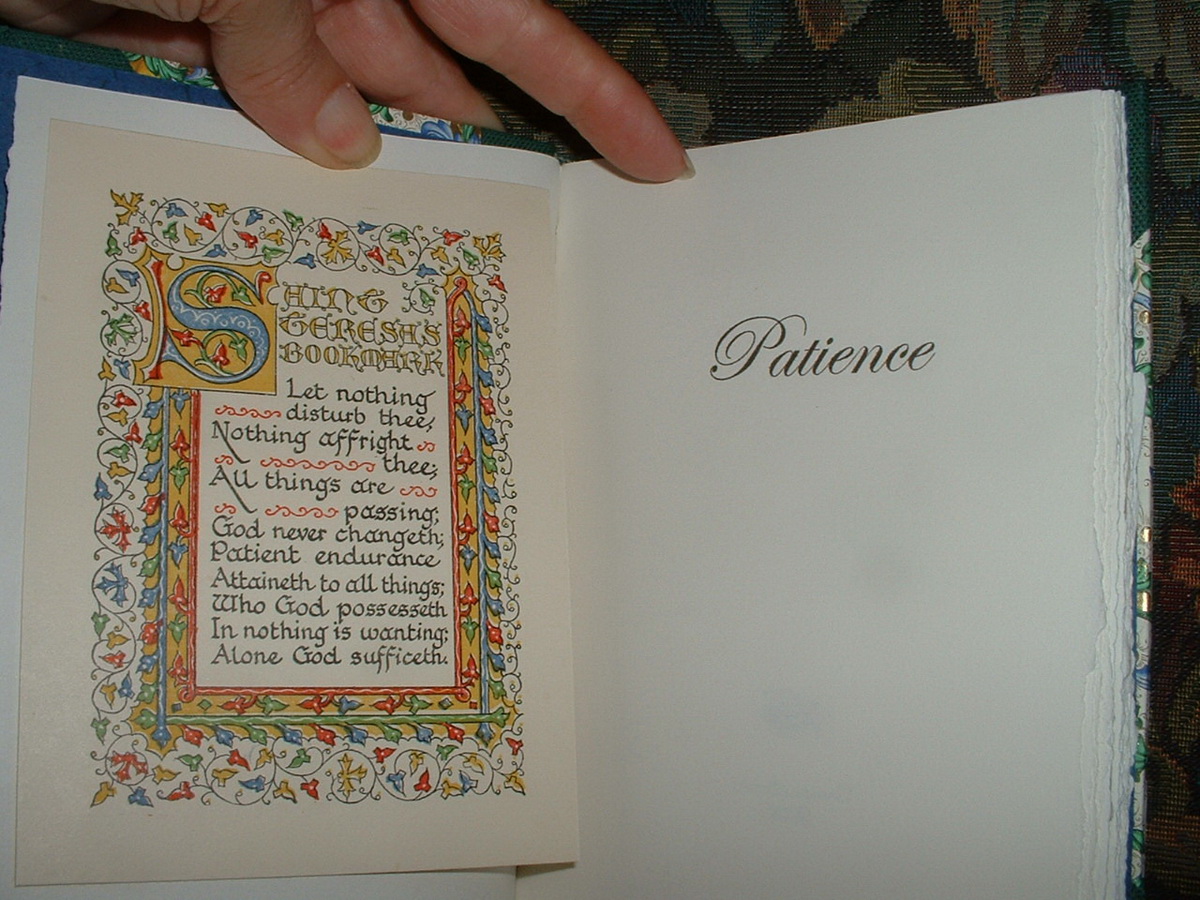 SAINT
TERESA'S
BOOKMARK
Let nothing
disturb thee,
Nothing affright
thee;
All things are
passing;
God never changeth;
Patient endurance
Attaineth to all things;
Who God possesseth
In nothing is wanting;
Alone God sufficeth.
Patience